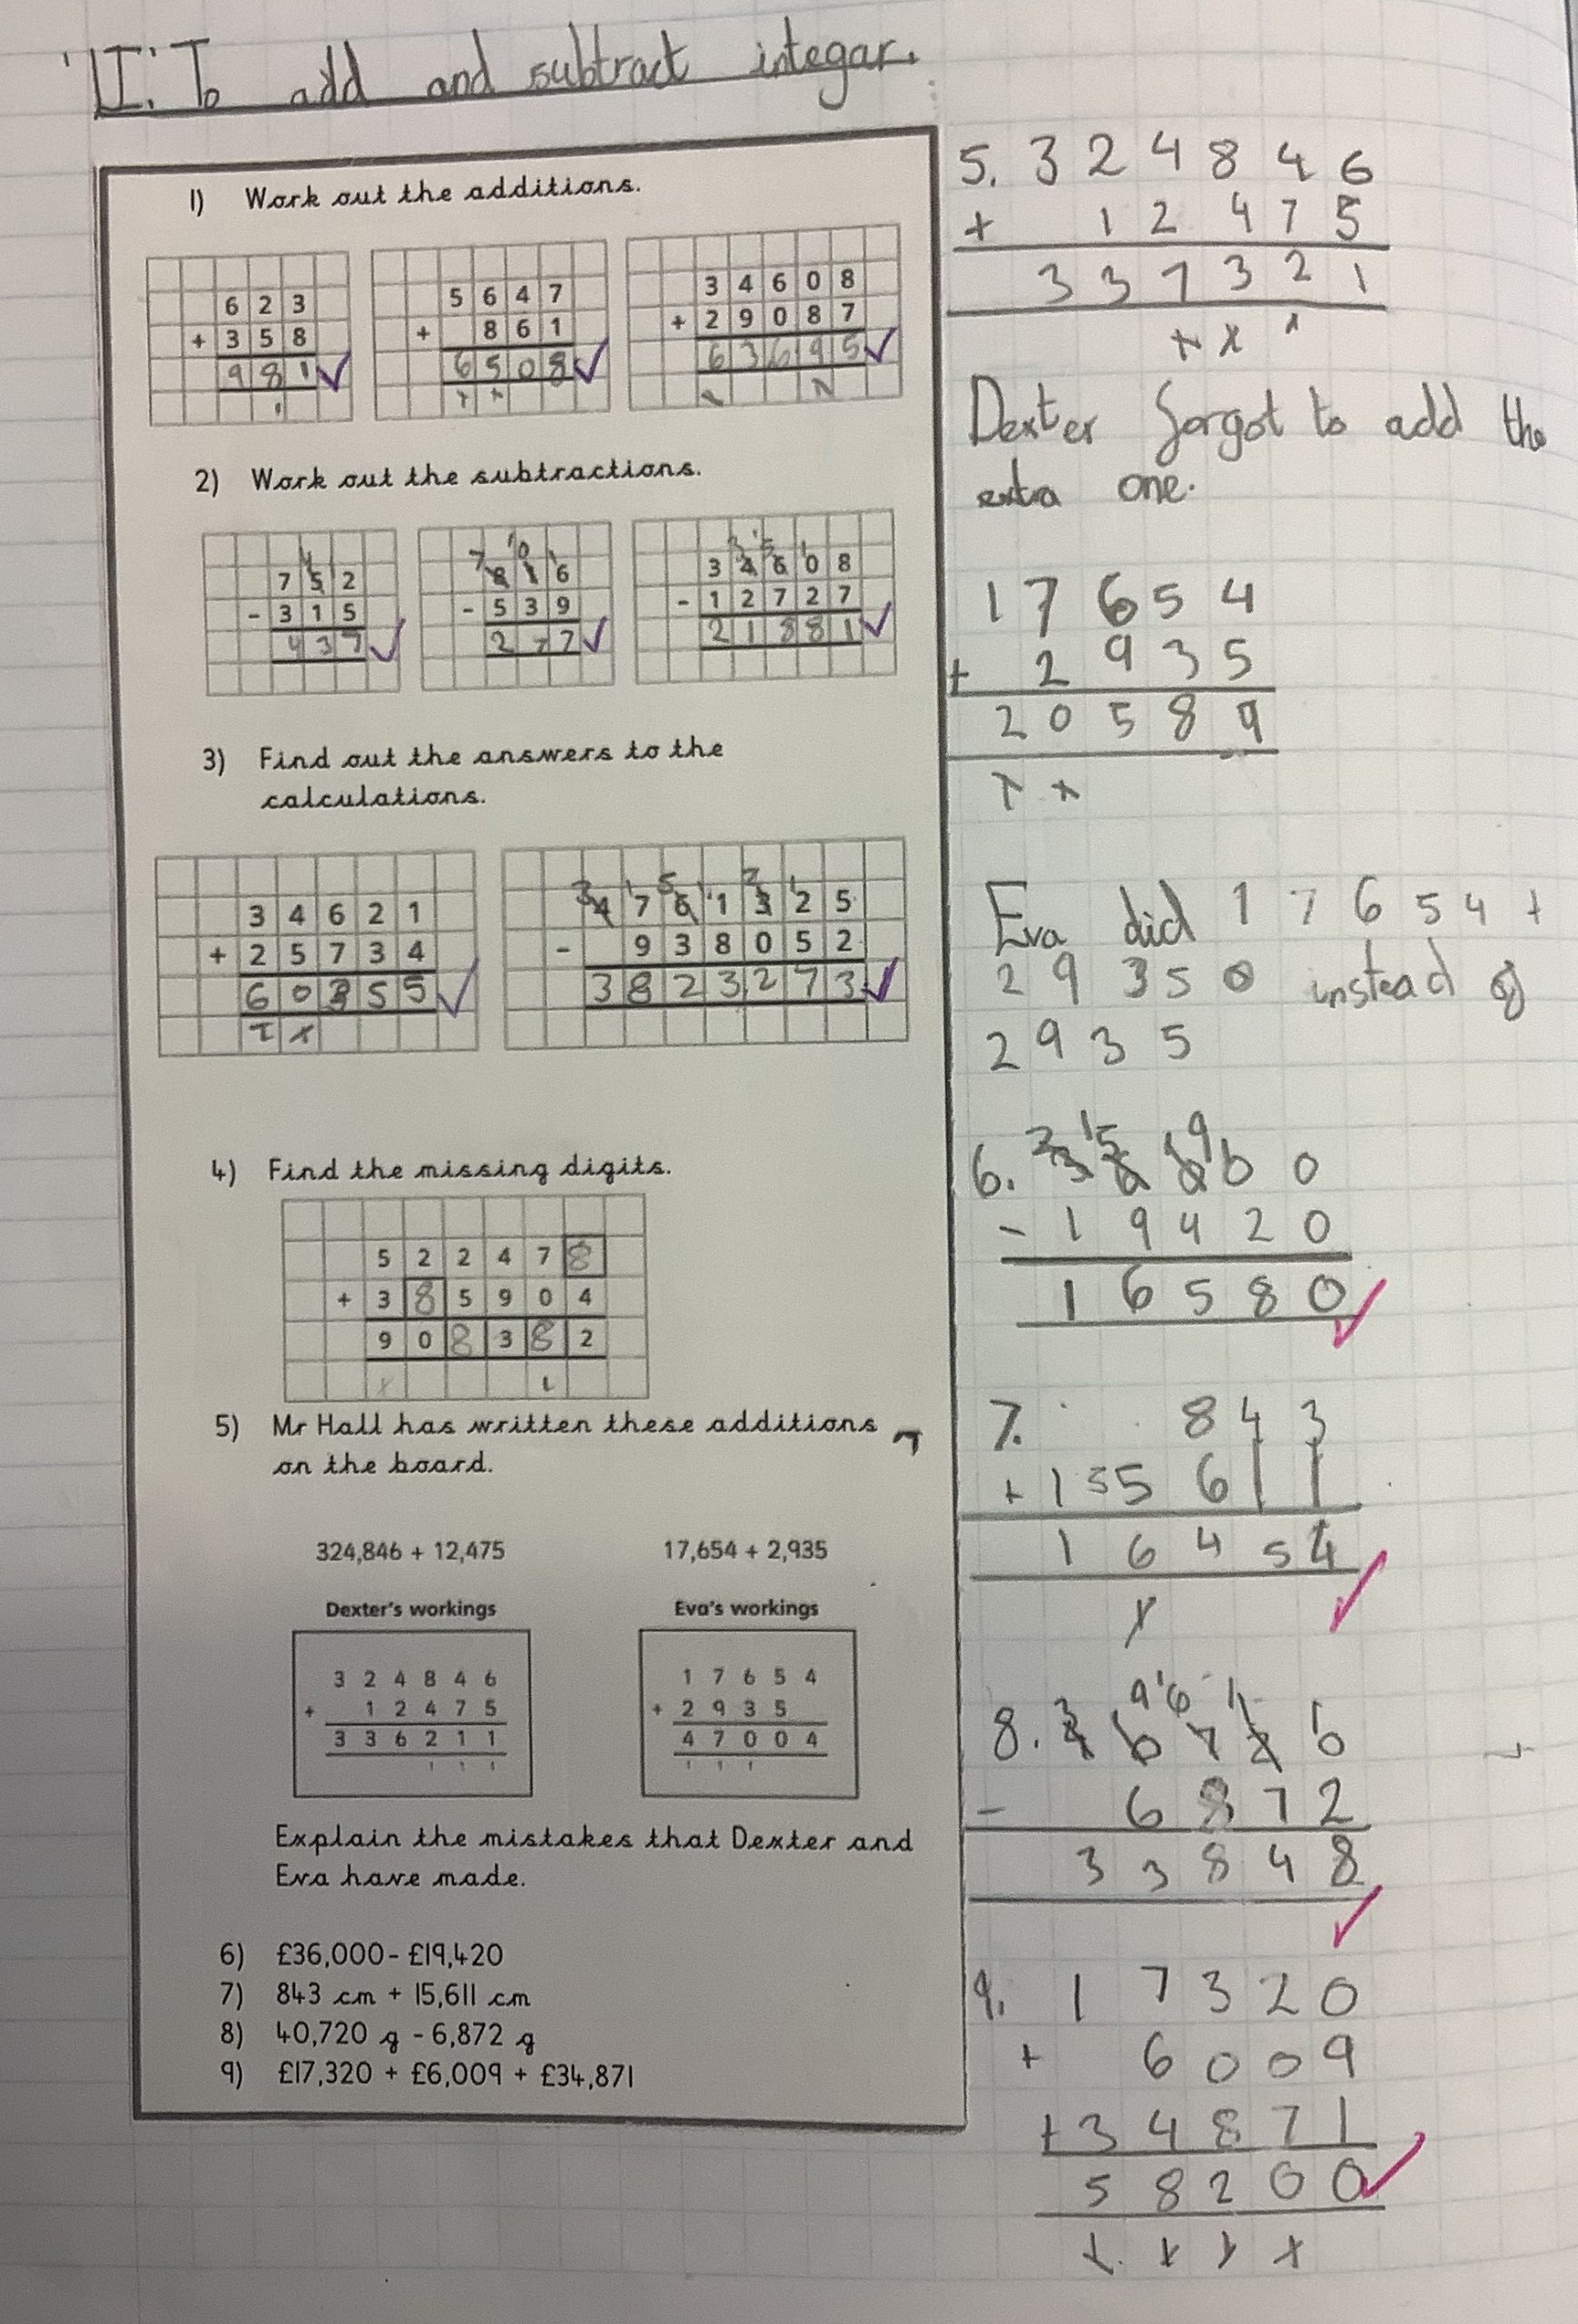 LI: To add and subtract integar.
1) Work out the additions.
6 2 3
+ 3 5 8
9 8 1
1
5 6 4 7
+ 8 6 1
6 5 0 8
1 1
3 4 6 0 8
+ 2 9 0 8 7
6 3 6 9 5
1 1
2) Work out the subtractions.
4
7 5 2
- 3 1 5
4 3 7
7 10 1
8 1 6
- 5 3 9
2 7 7
3 15 1
3 4 6 0 8
- 1 2 7 2 7
2 1 8 8 1
3) Find out the answers to the
calculations.
3 4 6 2 1
+ 2 5 7 3 4
6 0 3 5 5
1 1
3 1 5 1 2 1
4 7 6 1 3 2 5
- 9 3 8 0 5 2
3 8 2 3 2 7 3
4) Find the missing digits.
5 2 2 4 7 8
+ 3 8 5 9 0 4
9 0 8 3 8 2
1 1
5) Mr Hall has written these additions
on the board.
324,846 + 12,475
17,654 + 2,935
Dexter's workings
3 2 4 8 4 6
+ 1 2 4 7 5
3 3 6 2 1 1
1 1 1
Eva's workings
1 7 6 5 4
+ 2 9 3 5
4 7 0 0 4
1 1 1
Explain the mistakes that Dexter and
Eva have made.
6) £36,000 - £19,420
7) 843 cm + 15,611 cm
8) 40,720 g - 6,872 g
9) £17,320 + £6,009 + £34,871
5. 3 2 4 8 4 6
+ 1 2 4 7 5
3 3 7 3 2 1
1 1 1
Dexter forgot to add the
extra one.
1 7 6 5 4
+ 2 9 3 5
2 0 5 8 9
1 1
Eva did 1 7 6 5 4 +
2 9 3 5 0 instead of
2 9 3 5
2 15 9
6. 3 6 0 0 0
- 1 9 4 2 0
1 6 5 8 0
7. 8 4 3
+ 1 5 6 1 1
1 6 4 5 4
1
3 9 16 11 1
8. 4 0 7 2 0
- 6 8 7 2
3 3 8 4 8
9. 1 7 3 2 0
+ 6 0 0 9
+ 3 4 8 7 1
5 8 2 0 0
1 1 1 1